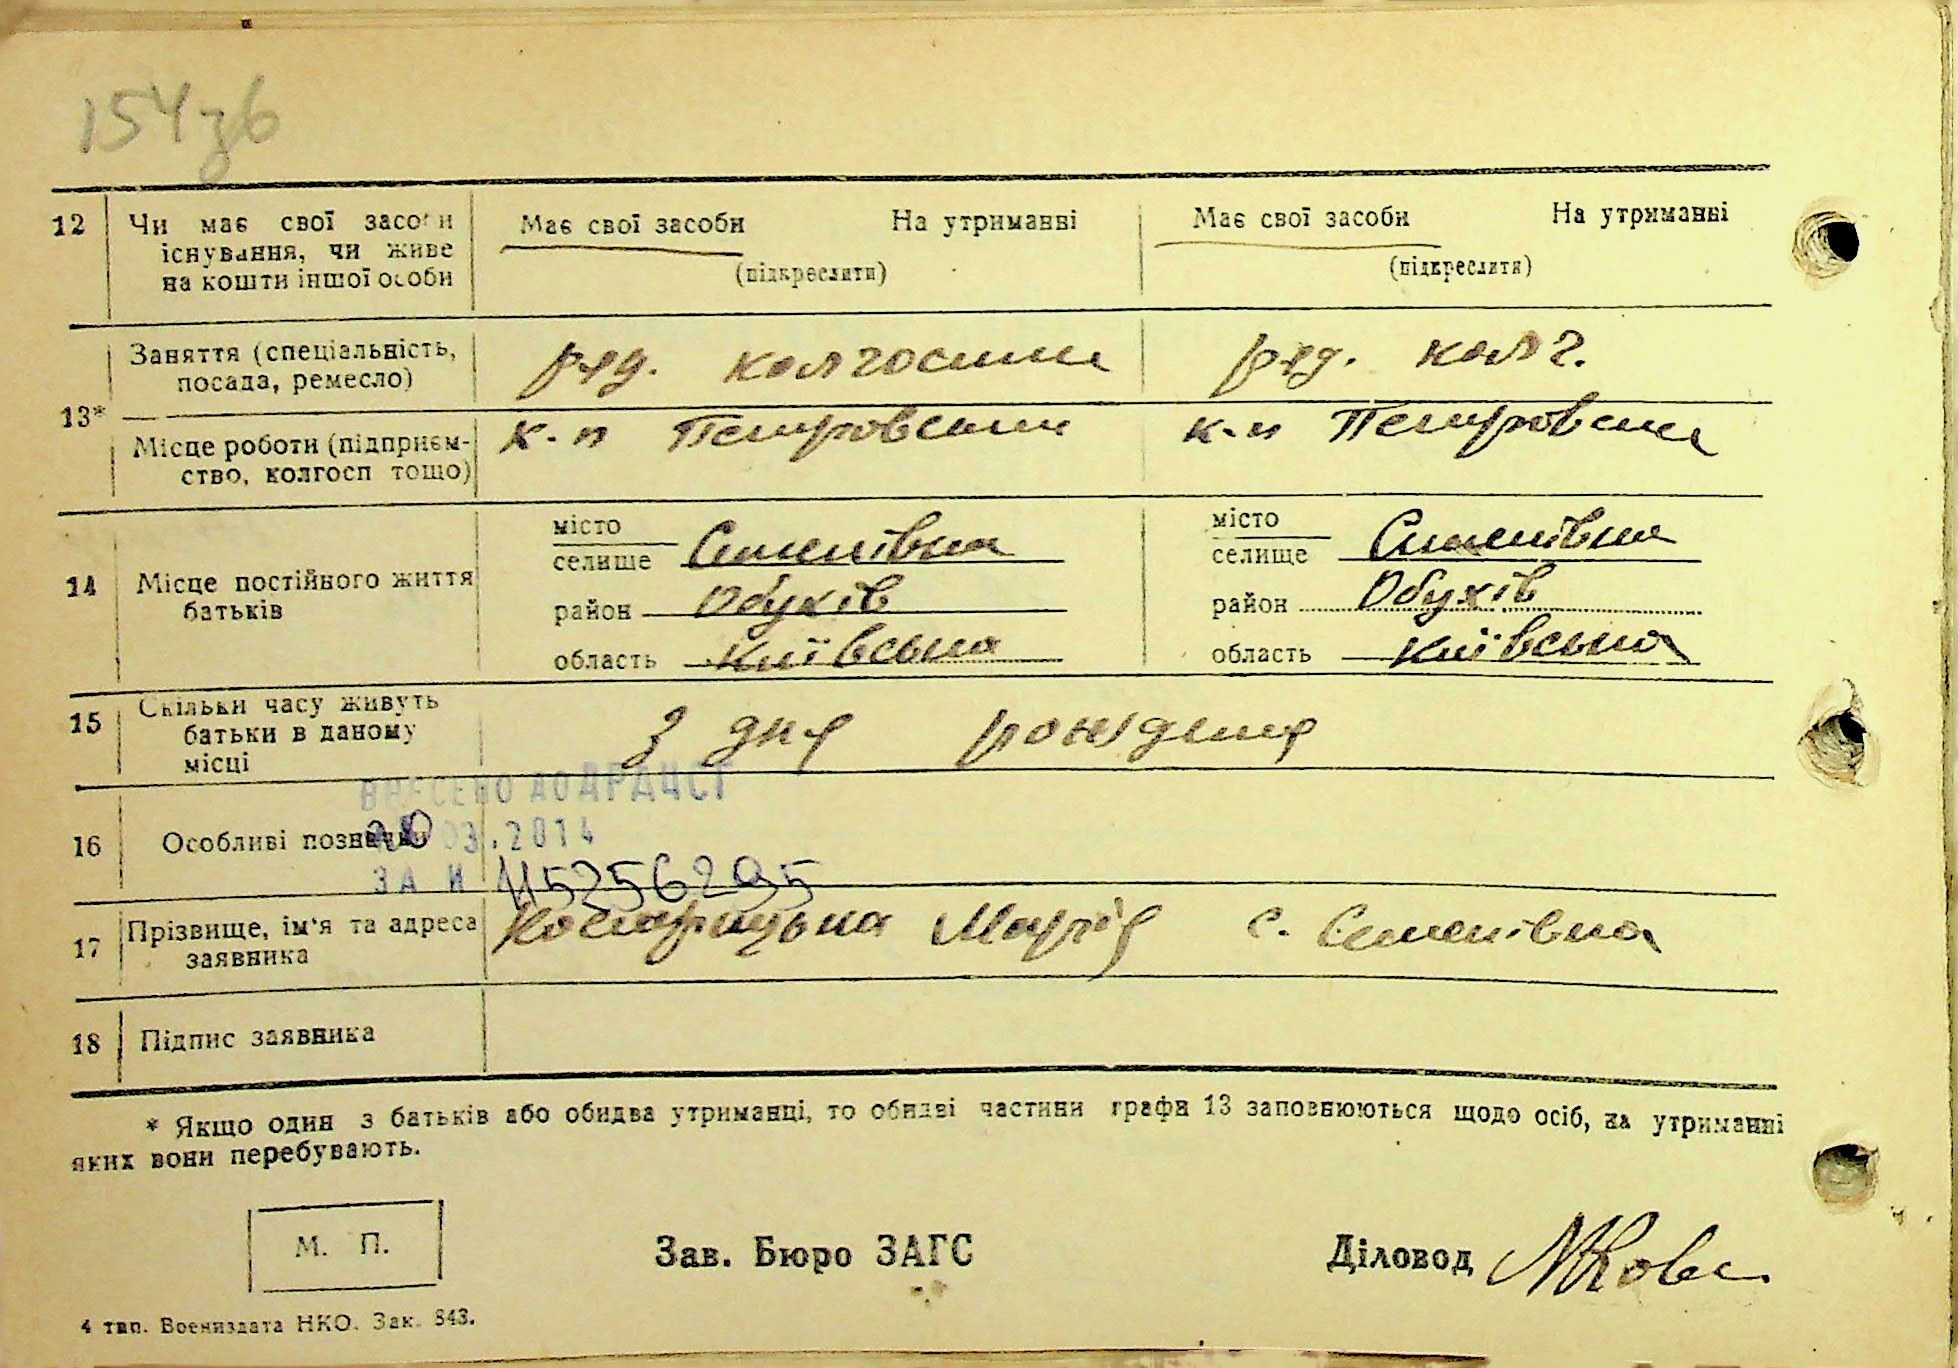 154зв
12 Чи має свої засоби Має свої засоби На утриманні Має свої засоби На утриманні
існування, чи живе
на кошти іншої особи (підкреслити) (підкреслити)
Заняття (спеціальність, ряд. колгоспник ряд. колг.
посада, ремесло)
13*
Місце роботи (підприєм- к-п Петровський к-п Петровськ
ство, колгосп тощо)
14 Місце постійного життя
батьків
місто місто
селище Семенівка селище Семенівка
район Обухів район Обухів
область Київська область Київська
15 Скільки часу живуть
батьки в даному
місці
з дня рождения
ВНЕСЕНО ДО ДРАЦСГ
16 Особливі познач 20 03.2014
ЗА № 115256295
17 Прізвище, ім'я та адреса Костирицька Марія с. Семенівка
заявника
18 Підпис заявника
* Якщо один з батьків або обидва утриманці, то обидві частини графи 13 заповнюються щодо осіб, на утриманні
яких вони перебувають.
М. П.
Зав. Бюро ЗАГС Діловод
4 тип. Воениздата НКО. Зак. 843.